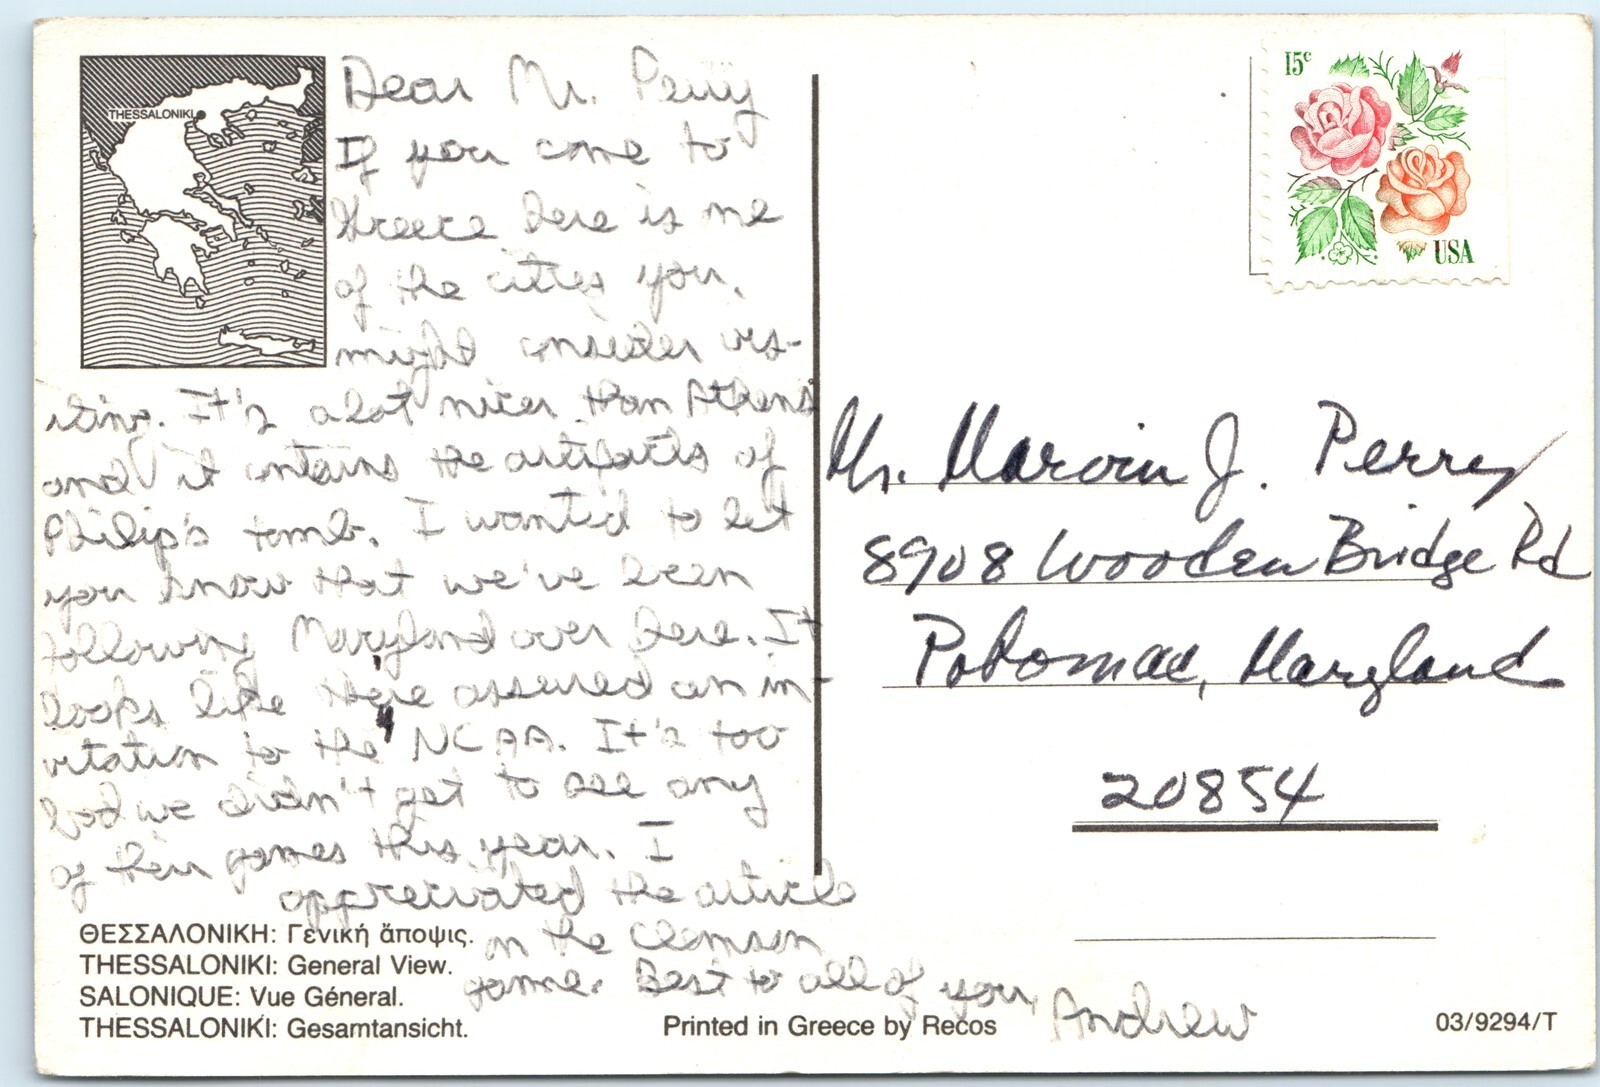 THESSALONIKI
Dear Mr. Perry
If you come to
Greece here is one
of the cities you
might consider vis-
iting. It's alot nicer than Athens
and it contains the artifacts of
Philip's tomb. I wanted to let
you know that we've been
following Maryland over here. It
looks like they're assured an in-
vitation to the NCAA. It's too
bad we didn't get to see any
of their games this year. I
appreciated the article
on the Clemson
game. Best to all of you,
Andrew
ΘΕΣΣΑΛΟΝΙΚΗ: Γενική ἄποψις.
THESSALONIKI: General View.
SALONIQUE: Vue Général.
THESSALONIKI: Gesamtansicht.
Printed in Greece by Recos
03/9294/T
15c
USA
Mr. Marvin J. Perry
8908 Wooden Bridge Rd
Potomac, Maryland
20854